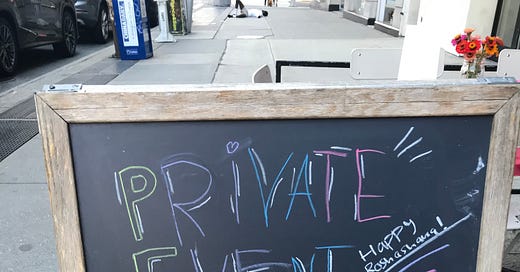 PRIVATE
EVENT
Happy
Roshashana!